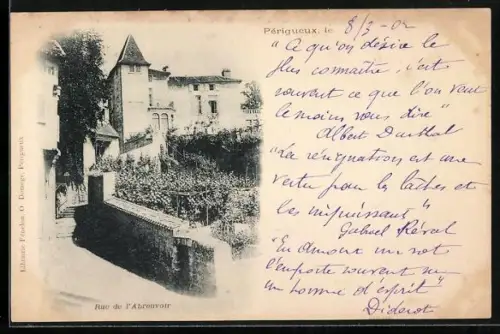 Périgueux, le 8/3-02
"Ce qu'on désire le
plus connaître, c'est
souvent ce que l'on veut
le moins vous dire"
Albert
"La résignation est une
vertu pour les lâches et
les impuissants"
Gabriel Réval
"En amour un sot
l'emporte souvent sur
un homme d'esprit"
Diderot
Librairie O. Domège, Périgueux
Rue de l'Abreuvoir